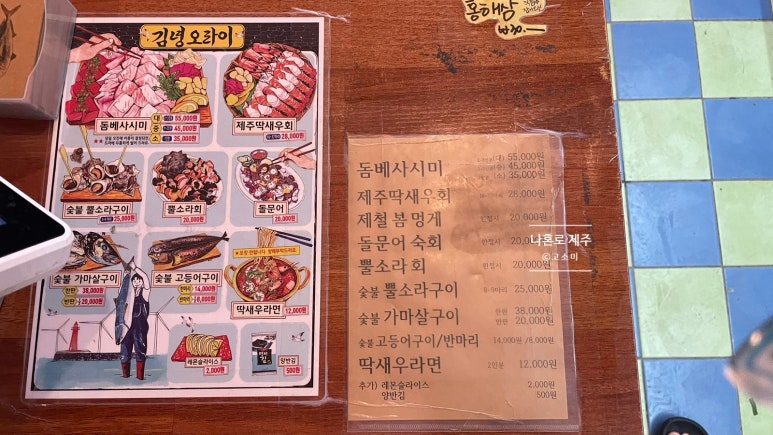 김녕오라이
돔베사시미
대 55,000원
중 45,000원
소 35,000원
제주딱새우회
28,000원
숯불 뿔소라구이
25,000원
뿔소라회
20,000원
돌문어
20,000원
숯불 가마살구이
한판 38,000원
반판 20,000원
숯불 고등어구이
한마리 14,000원
반마리 8,000원
딱새우라면
12,000원
레몬슬라이스
2,000원
양반김
500원
홍해삼
돔베사시미 (대) 55,000원
(중) 45,000원
(소) 35,000원
제주딱새우회 28,000원
제철 봄 멍게 한접시 20,000원
돌문어 숙회 한접시 20,000원
뿔소라 회 한접시 20,000원
숯불 뿔소라구이 8-9마리 25,000원
숯불 가마살구이 한판 38,000원
반판 20,000원
숯불 고등어구이/반마리 14,000원 /8,000원
딱새우라면 2인분 12,000원
추가) 레몬슬라이스 2,000원
양반김 500원
나혼로제주
©고소미